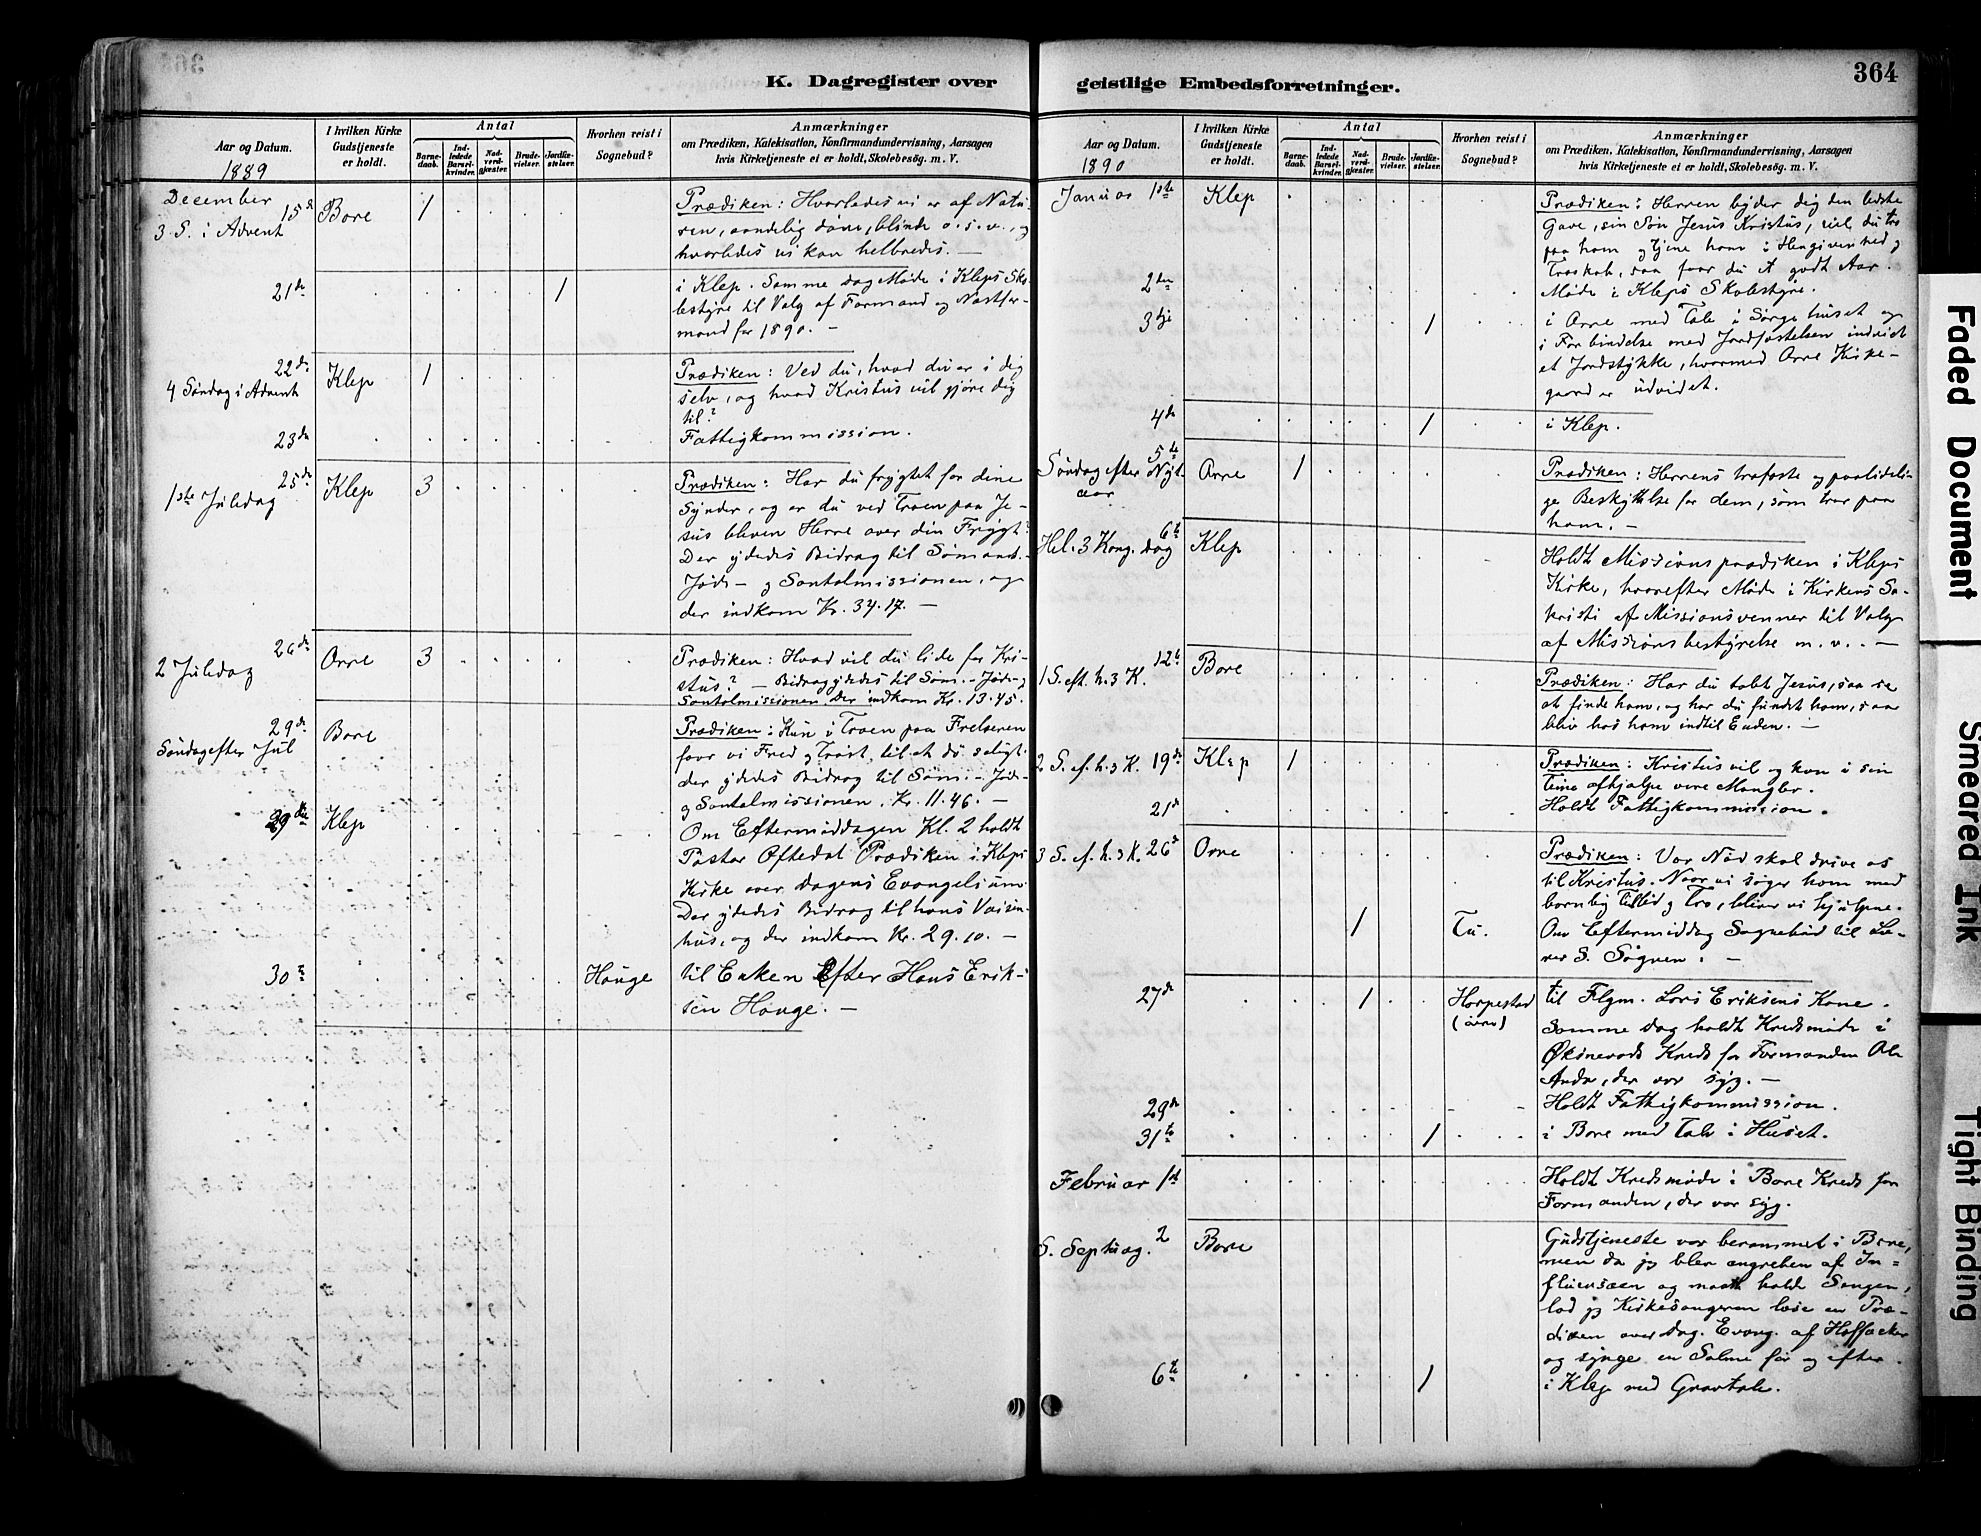 K. Dagregister over
Aar og Datum.
1889
I hvilken Kirke
Gudstjeneste
er holdt.
Antal
Barne-
daab.
Ind-
ledede
Barsel-
kvinder.
Nad-
verd-
gjæster.
Brude-
vielser.
Jordfæ-
stelser.
Hvorhen reist i
Sognebud?
Anmærkninger
om Prædiken, Katekisation, Konfirmandundervisning, Aarsagen
hvis Kirketjeneste ei er holdt, Skolebesög. m. V.
December
15de Bore 1
3 S. i Advent
Prædiken: Hvorledes vi er af Natu-
ren, aandelig døve, blinde o. s. v., og
hvorledes vi kan helbredes. —
21de 1
i Klep. Samme dag Møde i Kleps Sko-
lestyre til Valg af Formand og Næstfor-
mand for 1890. —
22de Klep 1
4 Søndag i Advent
Prædiken: Ved du, hvad du er i dig
selv, og hvad Kristus vil gjøre dig
til?
23de Fattigkommission.
25de Klep 3
1ste Juledag
Prædiken: Har du frygtet for dine
Synder, og er du ved Troen paa Je-
sus bleven Herre over din Frygt?
Der ydedes Bidrag til Sømands-
Jøde- og Santalmissionen, og
der indkom Kr. 34.17. —
26de Orre 3
2 Juledag
Prædiken: Hvad vil du lide for Kri-
stus? — Bidrag ydedes til Søm.- Jøde- og
Santalmissionen. Der indkom Kr. 13.45.
29de Bore
Søndag efter Jul
Prædiken: Kun i Troen paa Frelseren
faar vi Fred og Trøst til at dø saligt.
der ydedes Bidrag til Søm.- Jøde-
og Santalmissionen. Kr. 11.46. —
29de Klep
Om Eftermiddagen Kl. 2 holdt
Pastor Oftedal Prædiken i Kleps
Kirke over dagens Evangelium.
Der ydedes Bidrag til hans Vaisen-
hus, og der indkom Kr. 29.10. —
30te Hauge til Enken Efter Hans Erik-
sen Hauge. —
geistlige Embedsforretninger.
364
Aar og Datum.
1890
I hvilken Kirke
Gudstjeneste
er holdt.
Antal
Barne-
daab.
Ind-
ledede
Barsel-
kvinder.
Nad-
verd-
gjæster.
Brude-
vielser.
Jordfæ-
stelser.
Hvorhen reist i
Sognebud?
Anmærkninger
om Prædiken, Katekisation, Konfirmandundervisning, Aarsagen
hvis Kirketjeneste ei er holdt, Skolebesög. m. V.
Januar 1ste Klep
Prædiken: Herren byder dig den bedste
Gave, sin Søn Jesus Kristus, vil du tro
paa ham og tjene ham i Hengivenhed og
Troskab, saa faar du et godt Aar.
2den Møde i Kleps Skolestyre.
3dje 1
i Orre med Tale i Sørgehuset og
i Forbindelse med Jordfæstelsen indviet
et Jordstykke, hvormed Orre Kirke-
gaard er udvidet.
4de 1 i Klep.
5te Orre 1
Søndag efter Nyt-
aar
Prædiken: Herrens trofaste og paalideli-
ge Beskyttelse for dem, som tror paa
ham. —
6te Klep
Hel. 3 Kong. dag
Holdt Missionsprædiken i Kleps
Kirke, hvorefter Møde i Kirkens Sa-
kristi af Missionsvenner til Valg
af Missionsbestyrelse m. v. —
1 S. eft. h. 3 K. 12te Bore
Prædiken: Har du tabt Jesus, saa se
at finde ham, og har du fundet ham, saa
bliv hos ham indtil Enden. —
2 S. ef. h. 3 K. 19de Klep 1
Prædiken: Kristus vil og kan i sin
Time afhjælpe vore Mangler.
21de Holdt Fattigkommission.
3 S. ef. h. 3 K. 26de Orre
Prædiken: Vor Nød skal drive os
til Kristus. Naar vi søger ham med
barnlig Tillid og Tro, bliver vi hjulpne.
1 Tu. Om Eftermiddag Sognebud til
S. Sognen. —
27de 1 Horpestad
til Flgm. Lars Eriksens Kone.
Samme dag holdt Kredsmøde i
Øksnevads Kreds for Formanden Ole
, der var syg. —
29de Holdt Fattigkommission.
31te 1 i Bore med Tale i Huset.
Februar 1ste
Holdt Kredsmøde i Bore Kreds for
Formanden, der var syg.
S. Septuag. 2 Bore
Gudstjeneste var berammet i Bore,
men da jeg blev angreben af In-
fluensaen og maatte holde Sengen,
lod jeg Kirkesangeren læse en Præ-
diken over dag. Evang. af Hoffacker
og synge en Salme før og efter.
6te 1 i Klep med Gravtale.
Faded Document
Smeared Ink
Tight Binding